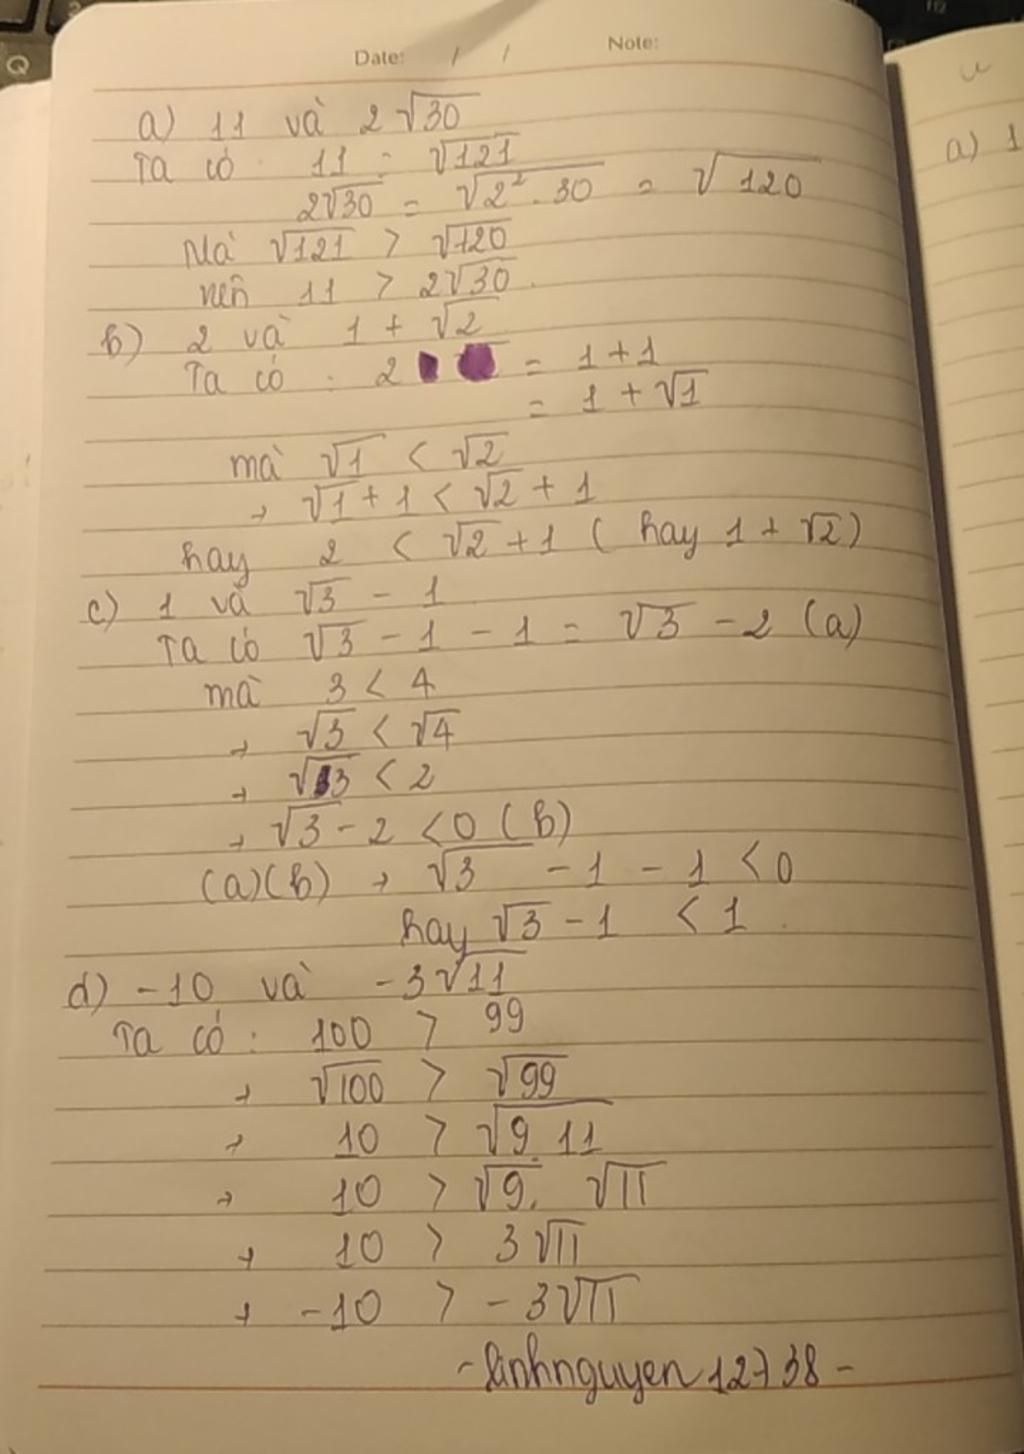 Date: / / Note:
a) 11 và 2√30
Ta có : 11 = √121
2√30 = √2² . 30 = √120
Mà √121 > √120
nên 11 > 2√30.
b) 2 và 1 + √2
Ta có : 2 = 1 + 1
= 1 + √1
mà √1 < √2
→ √1 + 1 < √2 + 1
hay 2 < √2 + 1 ( hay 1 + √2)
c) 1 và √3 - 1
Ta có √3 - 1 - 1 = √3 - 2 (a)
mà 3 < 4
→ √3 < √4
→ √3 < 2
→ √3 - 2 < 0 (b)
(a)(b) → √3 - 1 - 1 < 0
hay √3 - 1 < 1.
d) -10 và -3√11
Ta có : 100 > 99
→ √100 > √99
→ 10 > √9.11
→ 10 > √9. √11
→ 10 > 3√11
→ -10 > -3√11
- linhnguyen12738 -
Q
a) 1